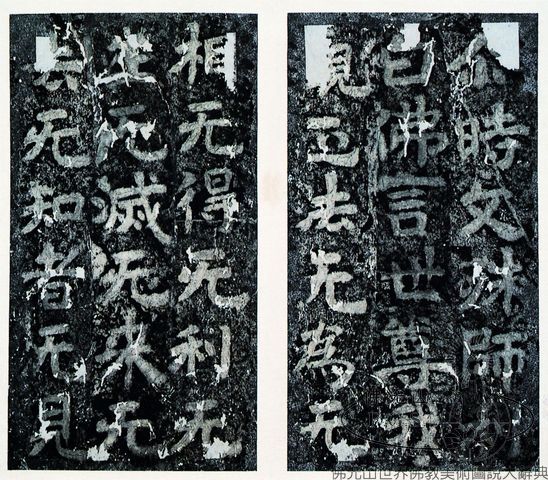 尒時文殊師利
白佛言世尊我
觀正法无為无
相无得无利无
生无滅无来无
去无知者无見
佛光山世界佛教美術圖說大辭典